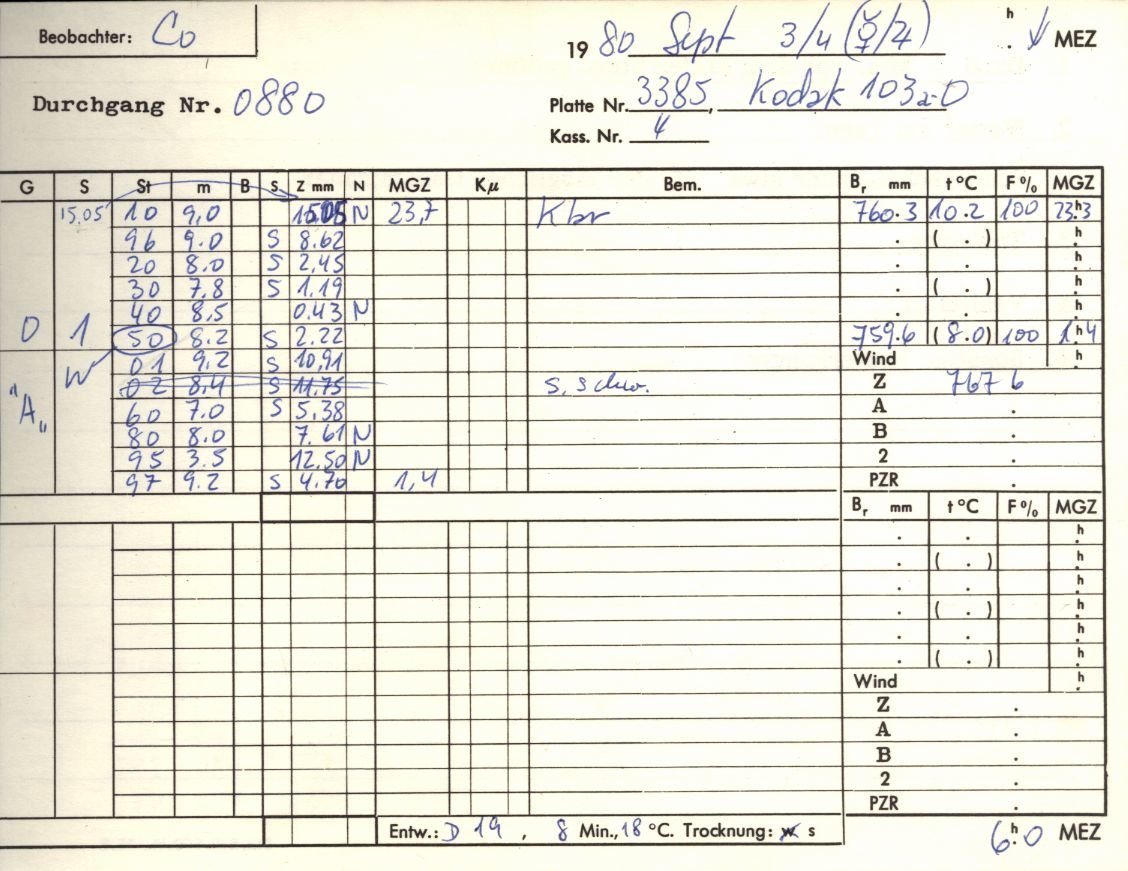 Beobachter: Co
19 80 Sept 3/4 (☿/♃) h . ↓ MEZ
Durchgang Nr. 0880
Platte Nr. 3385, Kodak 103a-O
Kass. Nr. 4
G S St m B S. Z mm N MGZ Kμ Bem. Br mm t °C F % MGZ
15,05 10 9,0 15,05 N 23,7 Kbr 760.3 10.2 100 23.h3
96 9.0 S 8.62 . ( . ) h
20 8.0 S 2,45 . . h
30 7,8 S 1.19 . ( . ) h
40 8,5 0.43 N . . h
0 1 50 8.2 S 2.22 759.6 (8.0) 100 1.h4
W 01 9,2 S 10,91 Wind h
02 8,4 S 11.75 S. schw. Z 767 6
"A„ 60 7.0 S 5,38 A .
80 8.0 7.61 N B .
95 3.5 12.50 N 2 .
97 9.2 S 4.70 1,4 PZR .
Br mm t °C F % MGZ
. . h
. ( . ) h
. . h
. ( . ) h
. . h
. ( . ) h
Wind h
Z .
A .
B .
2 .
PZR .
Entw.: D 19 , 8 Min., 18 °C. Trocknung: w s
6.h0 MEZ